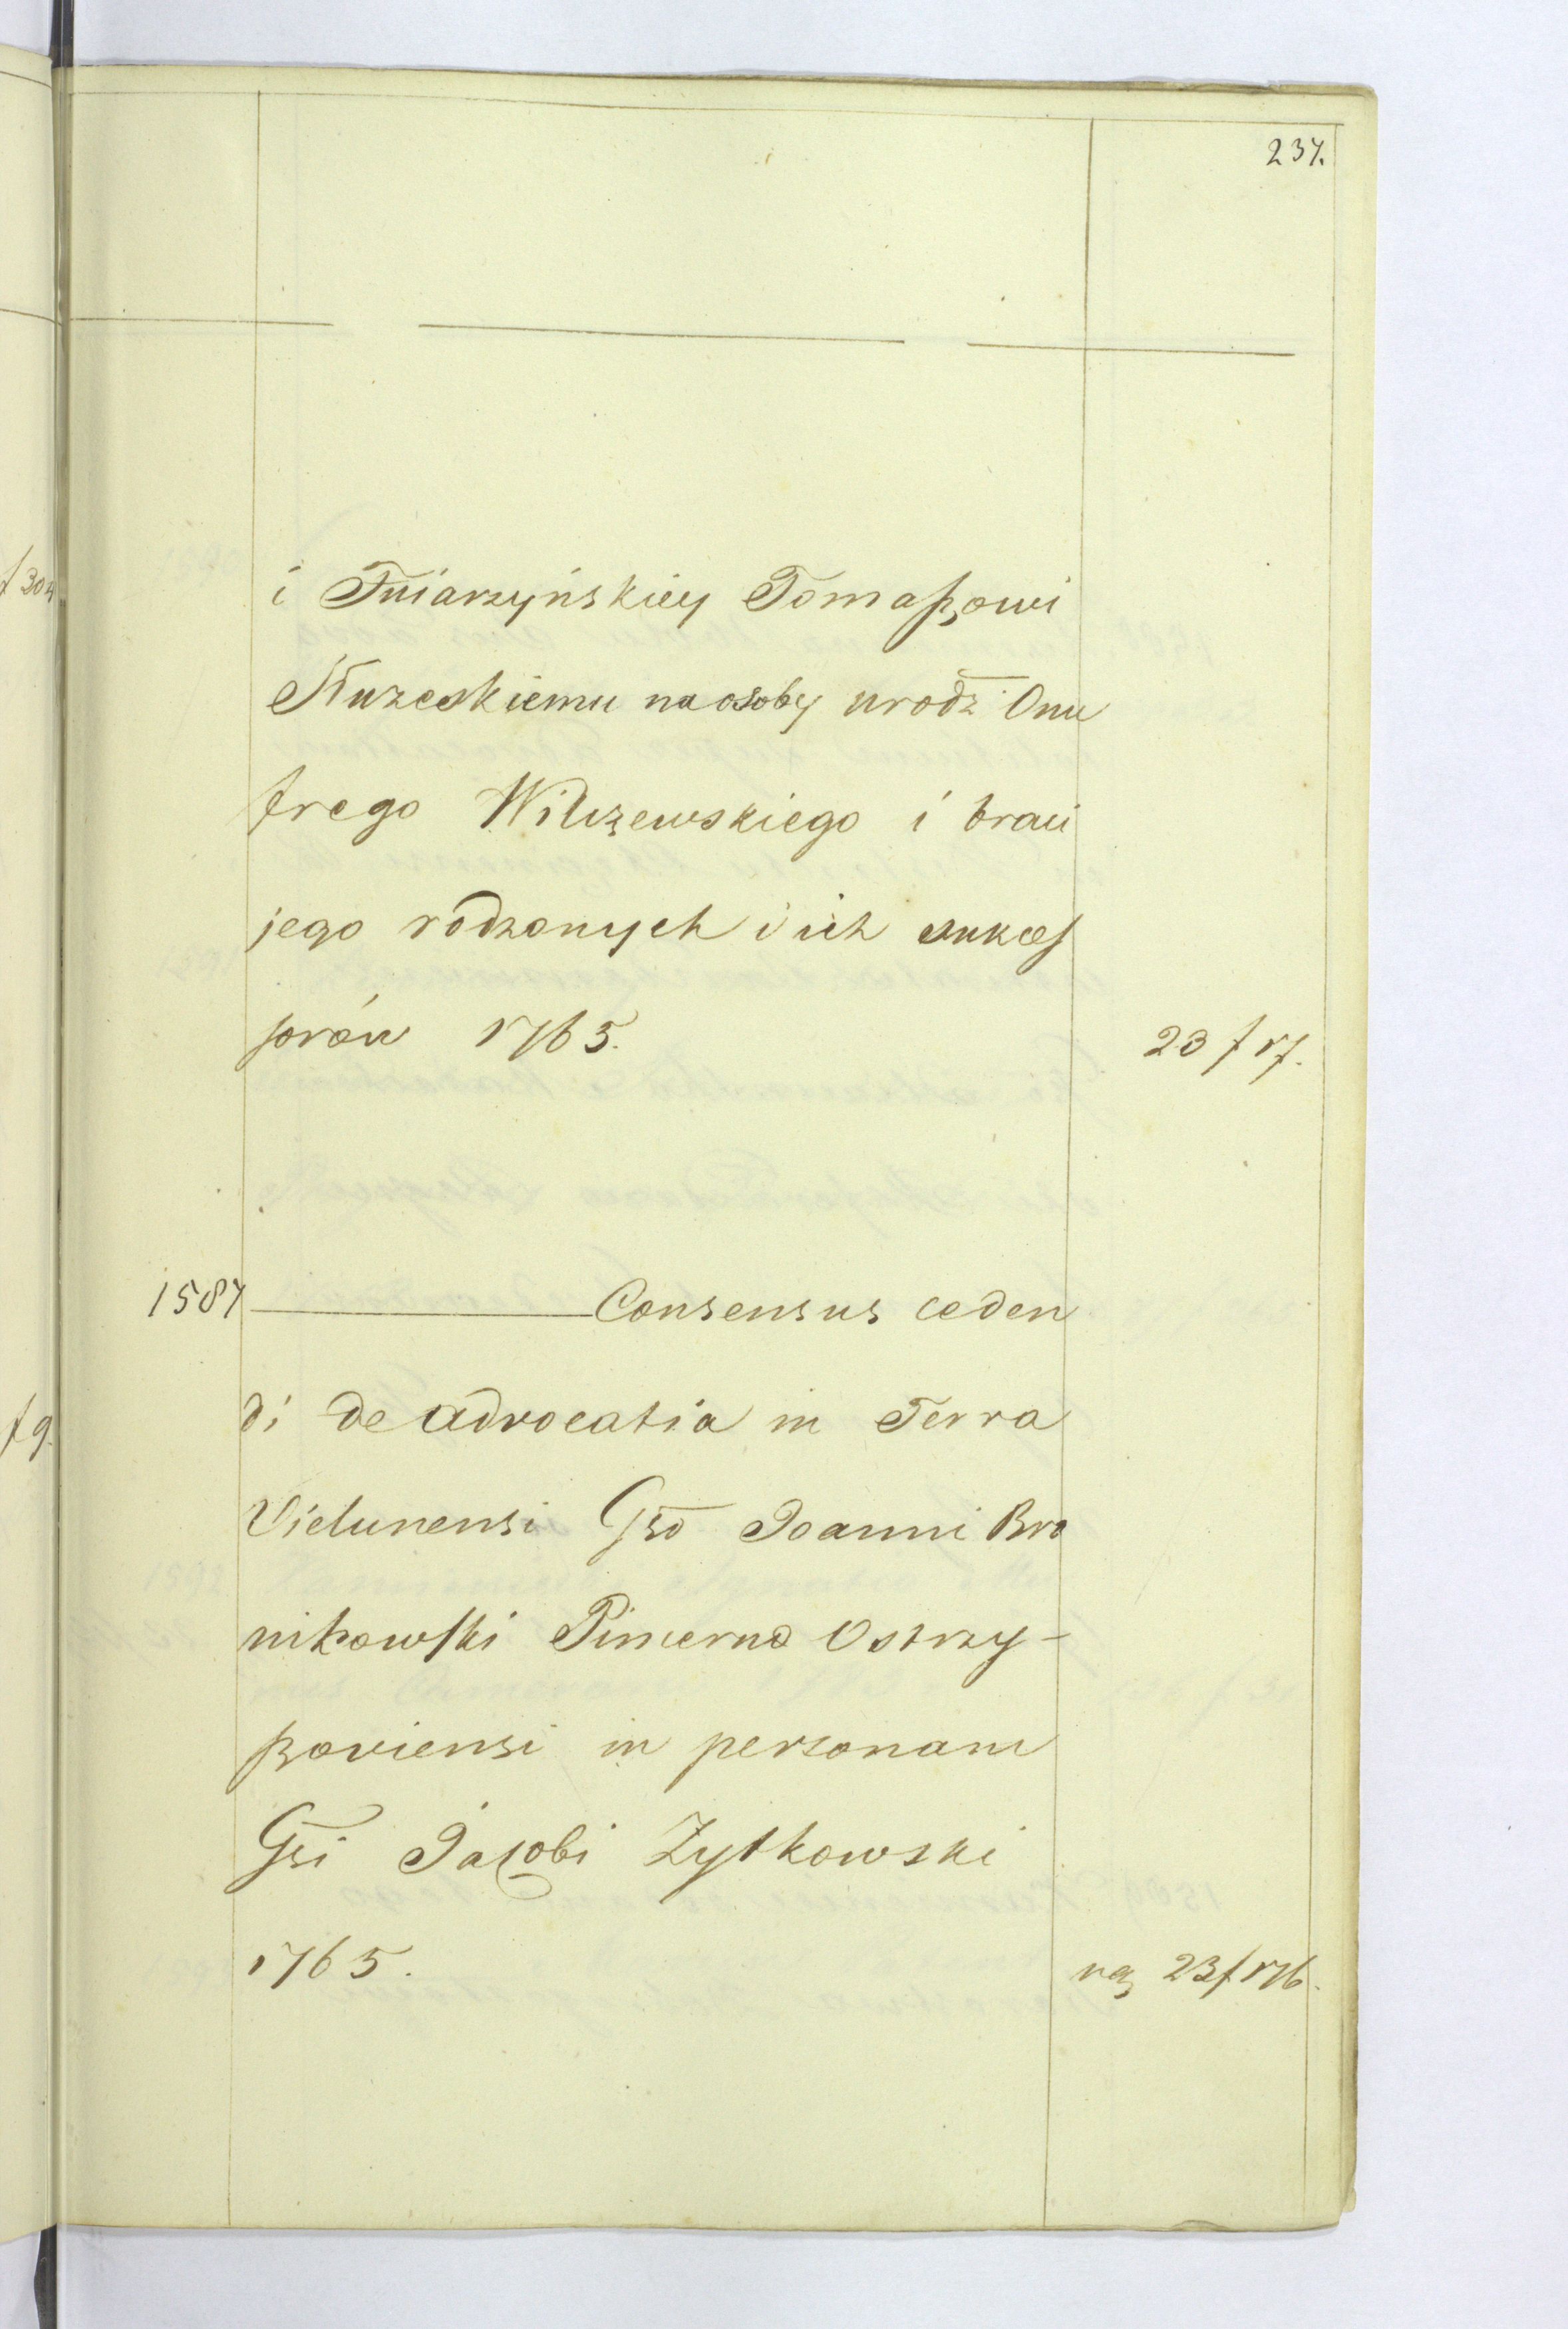 237.
i Tuiarzyńskiey Tomaszowi
Kuzeskiemu na osoby urodz Onu
frego Wilczewskiego i braci
jego rodzonych i ich sukces
sorów 1765. 23 f 17.
1587 Consensus ceden
di de Advocatia in Terra
Vielunensi Gso Joanni Bro
nikowski Pincerna Ostrzy-
szoviensi in personam
Gsi Jacobi Zytkowski
1765. 23 f 176.
f 304
f 9.